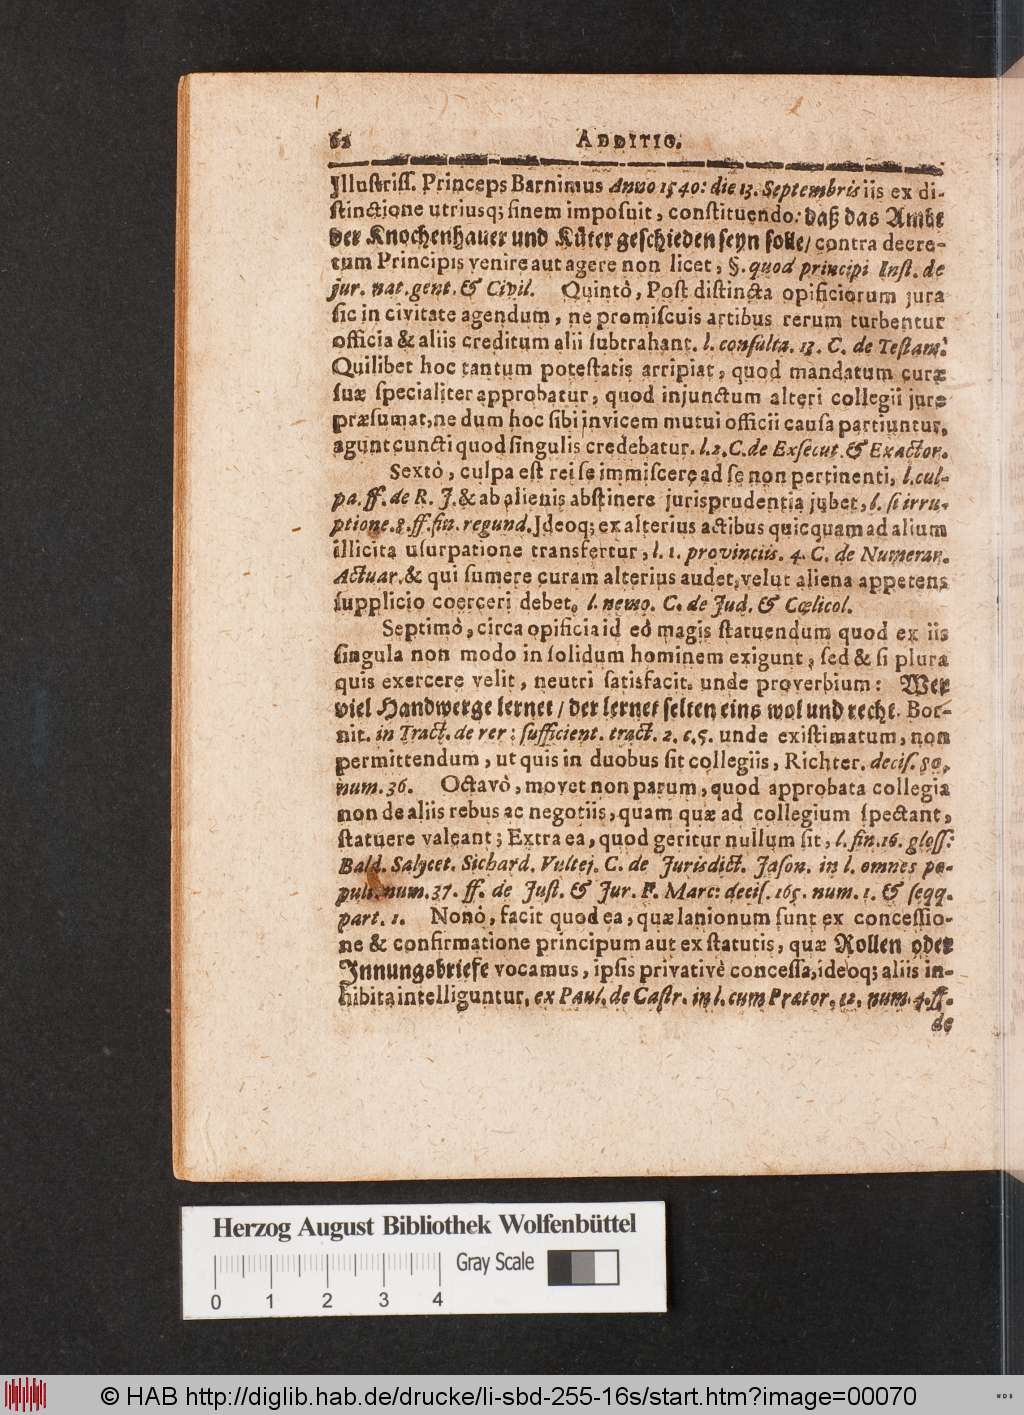 62 ADDITIO.
Illustriſſ. Princeps Barnimus Anno 1540: die 13. Septembris iis ex di-
ſtinctione utriusq; finem impoſuit, conſtituendo: daß das Ambt
der Knochenhauer und Küter geſchieden ſeyn ſolle / contra decre-
tum Principis venire aut agere non licet, §. quod principi Inſt. de
jur. nat. gent. & Civil. Quintò, Poſt diſtincta opificiorum jura
ſic in civitate agendum, ne promiſcuis artibus rerum turbentur
officia & aliis creditum alii ſubtrahant. l. conſulta. 13. C. de Teſtam.
Quilibet hoc tantum poteſtatis arripiat, quod mandatum curæ
ſuæ ſpecialiter approbatur, quod injunctum alteri collegii jure
præſumat, ne dum hoc ſibi invicem mutui officii cauſa partiuntur,
agunt cuncti quod ſingulis credebatur. l. 2. C. de Exſecut. & Exactor.
Sextò, culpa eſt rei ſe immiſcere ad ſe non pertinenti, l. cul-
pa. ff. de R. J. & ab alienis abſtinere jurisprudentia jubet, l. ſi irru-
ptione. 8. ff. fin. regund. Ideoq; ex alterius actibus quicquam ad alium
illicita uſurpatione transfertur, l. 1. provinciis. 4. C. de Numerar.
Actuar. & qui ſumere curam alterius audet, velut aliena appetens
ſupplicio coerceri debet. l. nemo. C. de Jud. & Cœlicol.
Septimò, circa opificia id eò magis ſtatuendum quod ex iis
ſingula non modo in ſolidum hominem exigunt, ſed & ſi plura
quis exercere velit, neutri ſatisfacit. unde proverbium: Wer
viel Handwerge lernet / der lernet ſelten eins wol und recht. Bor-
nit. in Tract. de rer: ſufficient. tract. 2. c. 5. unde exiſtimatum, non
permittendum, ut quis in duobus ſit collegiis, Richter. deciſ. 80.
num. 36. Octavò, movet non parum, quod approbata collegia
non de aliis rebus ac negotiis, quam quæ ad collegium ſpectant,
ſtatuere valeant; Extra ea, quod geritur nullum ſit, l. fin. 16. gloſſ:
Bald. Salycet. Sichard. Vultej. C. de Jurisdict. Jaſon. in l. omnes po-
puli. num. 37. ff. de Juſt. & Jur. F. Marc: deciſ. 165. num. 1. & ſeqq.
part. 1. Nonò, facit quod ea, quæ lanionum ſunt ex conceſſio-
ne & confirmatione principum aut ex ſtatutis, quæ Rollen oder
Innungsbriefe vocamus, ipſis privativè conceſſa, ideoq; aliis in-
hibita intelliguntur, ex Paul. de Caſtr. in l. cum Prætor. 12. num. 4. ff.
de
Herzog August Bibliothek Wolfenbüttel
Gray Scale
0 1 2 3 4
© HAB http://diglib.hab.de/drucke/li-sbd-255-16s/start.htm?image=00070
WDB